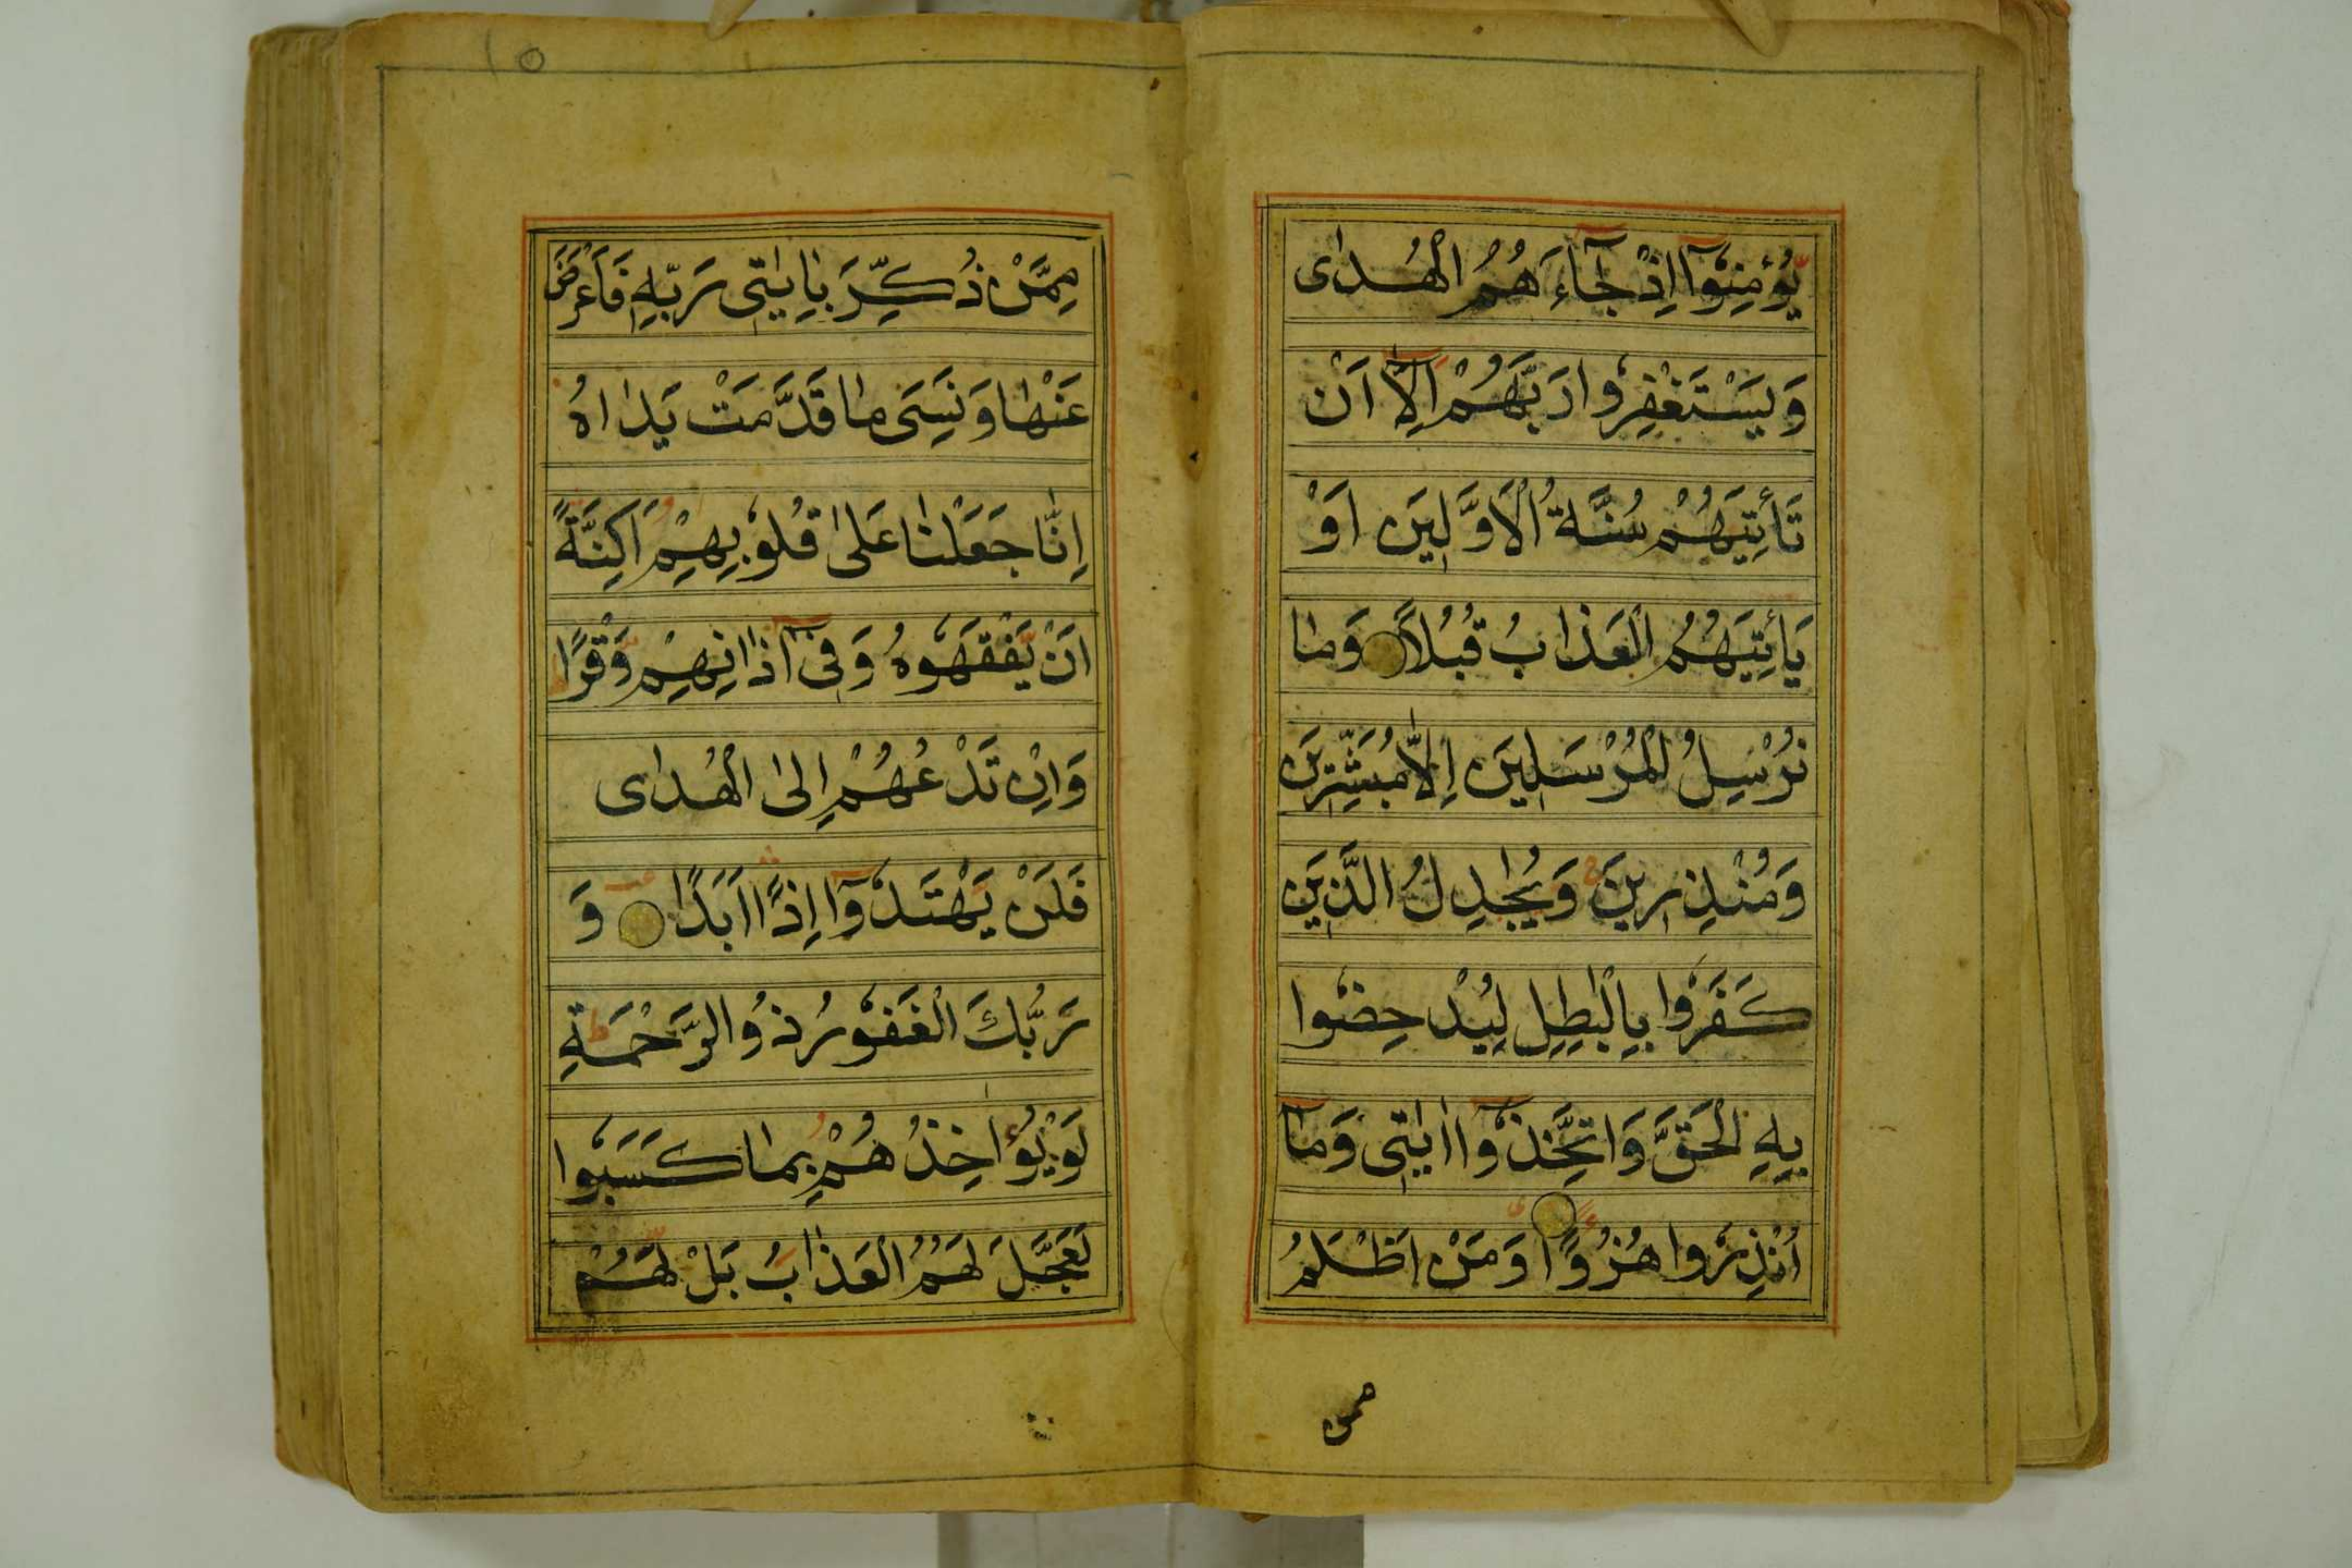 يُؤْمِنُوْآ اِذْ جَآءَ هُمُ الْهُدٰى
وَيَسْتَغْفِرُوْا رَبَّهُمْ اِلَّآ اَنْ
تَأْتِيَهُمْ سُنَّةُ الْاَوَّلِيَن اَوْ
يَأْتِيَهُمُ الْعَذٰابُ قُبُلًا وَمٰا
نُرْسِلُ الْمُرْسَلِيَن اِلّٰا مُبَشِّرِيَن
وَمُنْذِرِينَ وَيُجٰدِلُ الَّذِيَن
كَفَرُوْا بِالْبٰطِلِ لِيُدْحِضُوْا
بِهِ الْحَقَّ وَاتَّخَذُوْآ اٰيٰتِى وَمٰآ
اُنْذِرُوْا هُزُوًا وَمَنْ اَظْلَمُ
ممن
١٥
مِمَّنْ ذُكِّرَ بِاٰيٰتِ رَبِّهٖ فَاَعْرَضَ
عَنْهٰا وَنَسِىَ مٰا قَدَّمَتْ يَدٰاهُ
اِنّٰا جَعَلْنٰا عَلىٰ قُلُوْبِهِمْ اَكِنَّةً
اَنْ يَّفْقَهُوْهُ وَفِىْٓ اٰذٰانِهِمْ وَقْرًا
وَاِنْ تَدْعُهُمْ اِلىٰ الْهُدٰى
فَلَنْ يَهْتَدُوْآ اِذًا اَبَدًا وَ
رَبُّكَ الْغَفُوْرُ ذُوالرَّحْمَةِ
لَوْ يُؤٰاخِذُهُمْ بِمٰا كَسَبُوْا
لَعَجَّلَ لَهُمُ الْعَذٰابَ بَلْ لَهُمْ